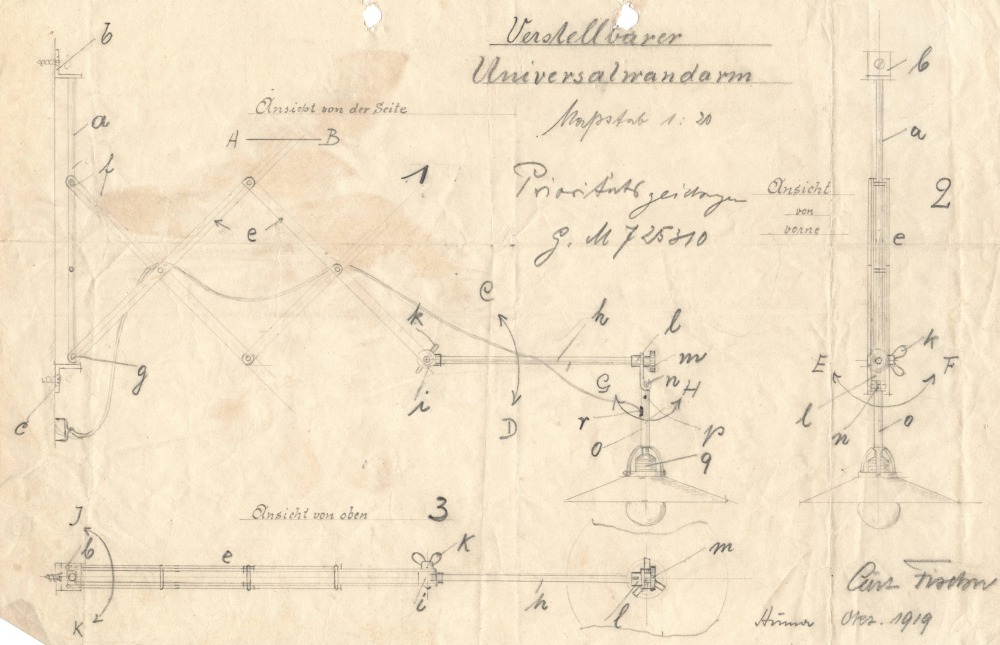 Verstellbarer
Universalwandarm
Maßstab 1:20
Ansicht von der Seite
A B
1
G. M 725310
Ansicht
von
vorne
2
b
a
f
e
g
c
C
D
k
i
h
l
m
n
G
H
r
o
p
q
b
a
e
k
E
F
l
n
o
Ansicht von oben 3
J
b
e
K
i
h
l
m
K
Curt Fischer
Dez. 1919